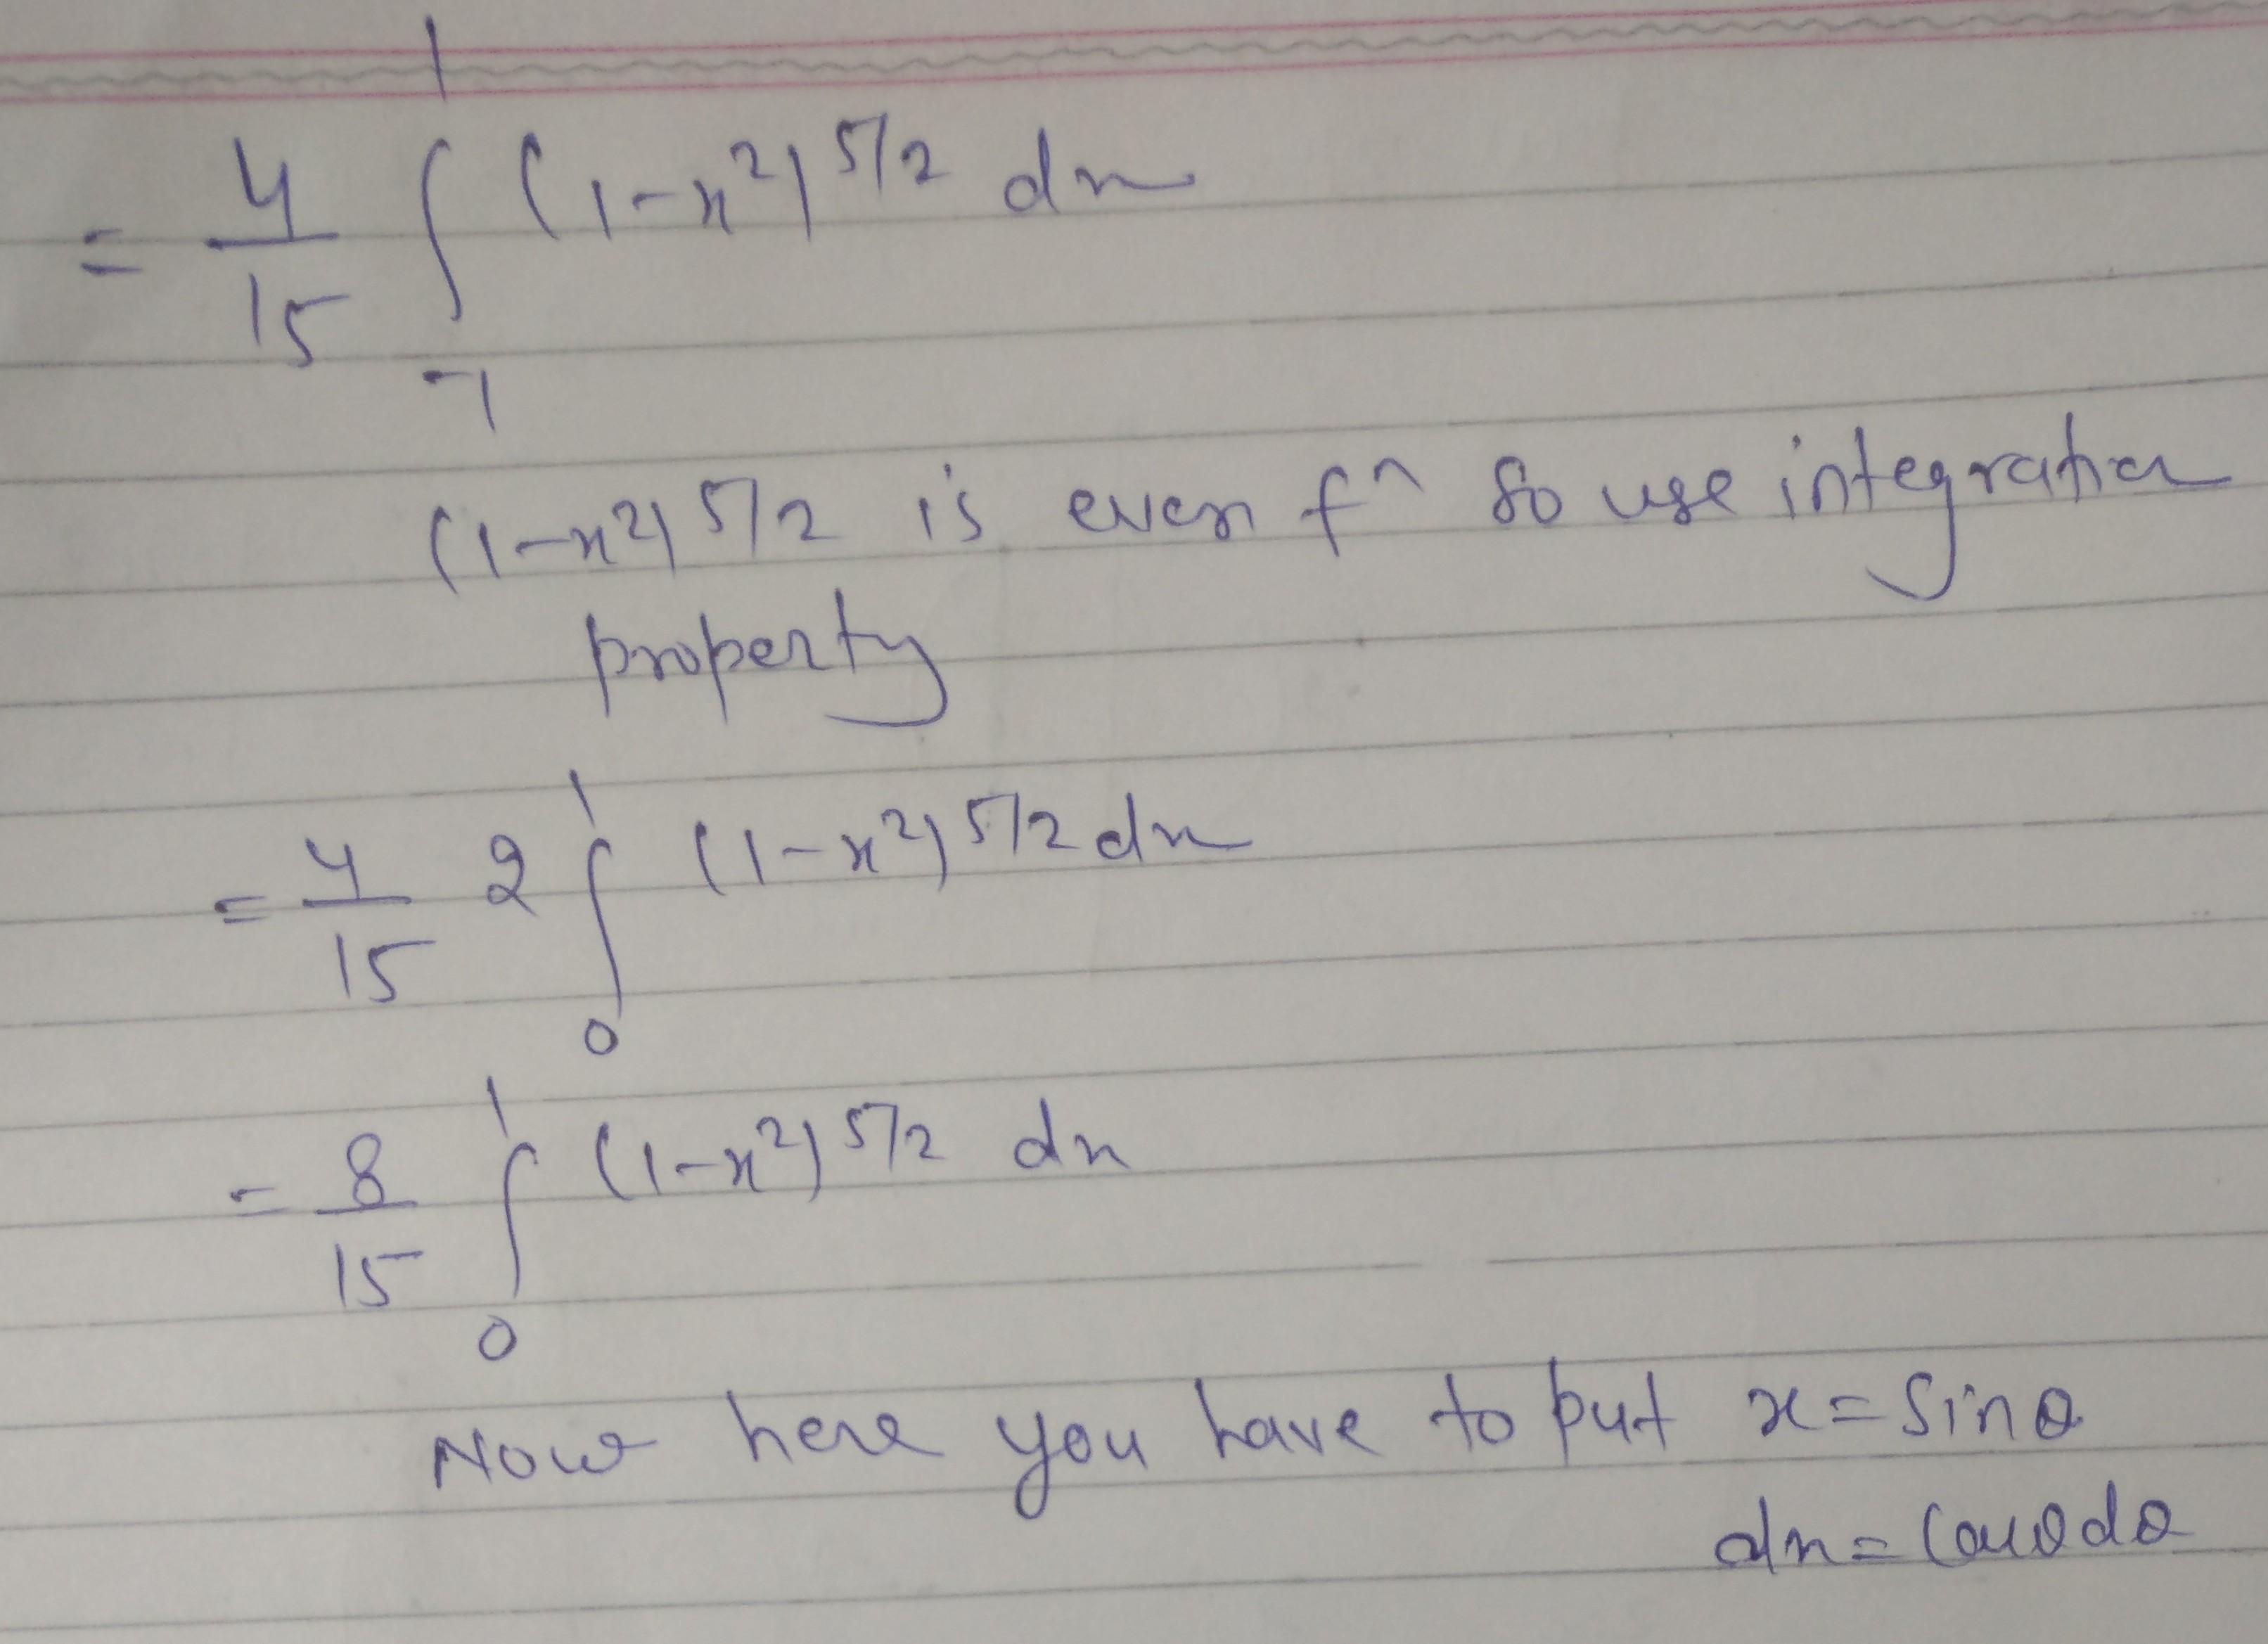 = 4/15 ∫_{-1}^{1} (1-x²)^{5/2} dx
(1-x²)^{5/2} is even fⁿ so use integration
property
= 4/15 2 ∫_{0}^{1} (1-x²)^{5/2} dx
= 8/15 ∫_{0}^{1} (1-x²)^{5/2} dx
Now here you have to put x = sinθ
dx = cosθdθ